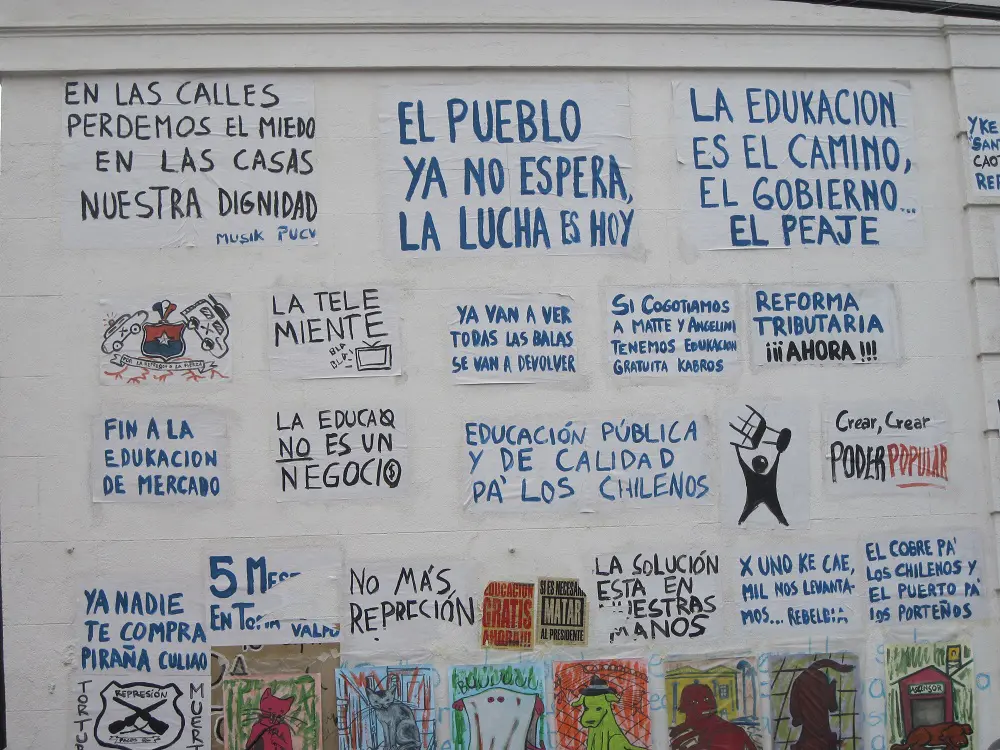 EN LAS CALLES
PERDEMOS EL MIEDO
EN LAS CASAS
NUESTRA DIGNIDAD
MUSIK PUCV
EL PUEBLO
YA NO ESPERA,
LA LUCHA ES HOY
LA EDUKACION
ES EL CAMINO,
EL GOBIERNO...
EL PEAJE
YKE
POR LA
LA FUERZA
LA TELE
MIENTE
BLA
BLA
YA VAN A VER
TODAS LAS BALAS
SE VAN A DEVOLVER
SI COGOTIAMOS
A MATTE Y ANGELINI
TENEMOS EDUKACION
GRATUITA KABROS
REFORMA
TRIBUTARIA
¡¡¡AHORA!!!
FIN A LA
EDUKACION
DE MERCADO
LA EDUCAQ
NO ES UN
NEGOCIO
EDUCACIÓN PÚBLICA
Y DE CALIDAD
PA' LOS CHILENOS
Crear, Crear
PODER POPULAR
YA NADIE
TE COMPRA
PIRAÑA CULIAO
5 MESE
EN TOMA VALPO
NO MÁS
REPRECIÓN
EDUCACION
GRATIS
AHORA!!!
SI ES NECESARIO
MATAR
AL PRESIDENTE
LA SOLUCIÓN
ESTA EN
NUESTRAS
MANOS
X UNO KE CAE,
MIL NOS LEVANTA-
MOS... REBELDIA
EL COBRE PA'
LOS CHILENOS Y
EL PUERTO PA'
LOS PORTEÑOS
TORTUR
REPRESIÓN
MUERT
ASCENSOR